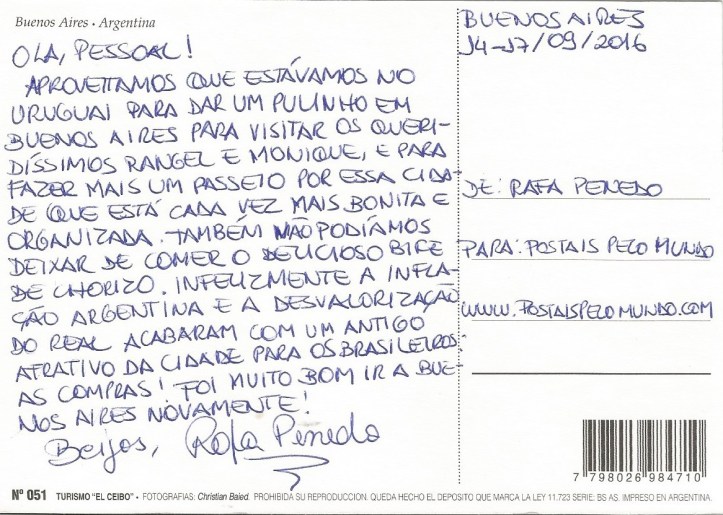 Buenos Aires • Argentina
OLA, PESSOAL!
APROVEITAMOS QUE ESTÁVAMOS NO
URUGUAI PARA DAR UM PULINHO EM
BUENOS AIRES PARA VISITAR OS QUERI-
DÍSSIMOS RANGEL E MONIQUE, E PARA
FAZER MAIS UM PASSEIO POR ESSA CIDA-
DE QUE ESTÁ CADA VEZ MAIS BONITA E
ORGANIZADA. TAMBÉM NÃO PODÍAMOS
DEIXAR DE COMER O DELICIOSO BIFE
DE CHORIZO. INFELIZMENTE A INFLA-
ÇÃO ARGENTINA E A DESVALORIZAÇÃO
DO REAL ACABARAM COM UM ANTIGO
ATRATIVO DA CIDADE PARA OS BRASILEIROS:
AS COMPRAS! FOI MUITO BOM IR A BUE-
NOS AIRES NOVAMENTE!
Beijos, Rafa Penedo
BUENOS AIRES
14-17/09/2016
DE: RAFA PENEDO
PARA: POSTAIS PELO MUNDO
WWW.POSTAISPELOMUNDO.COM
7 798026 984710
Nº 051 TURISMO "EL CEIBO" • FOTOGRAFIAS: Christian Baied. PROHIBIDA SU REPRODUCCION. QUEDA HECHO EL DEPOSITO QUE MARCA LA LEY 11.723 SERIE: BS AS. IMPRESO EN ARGENTINA.